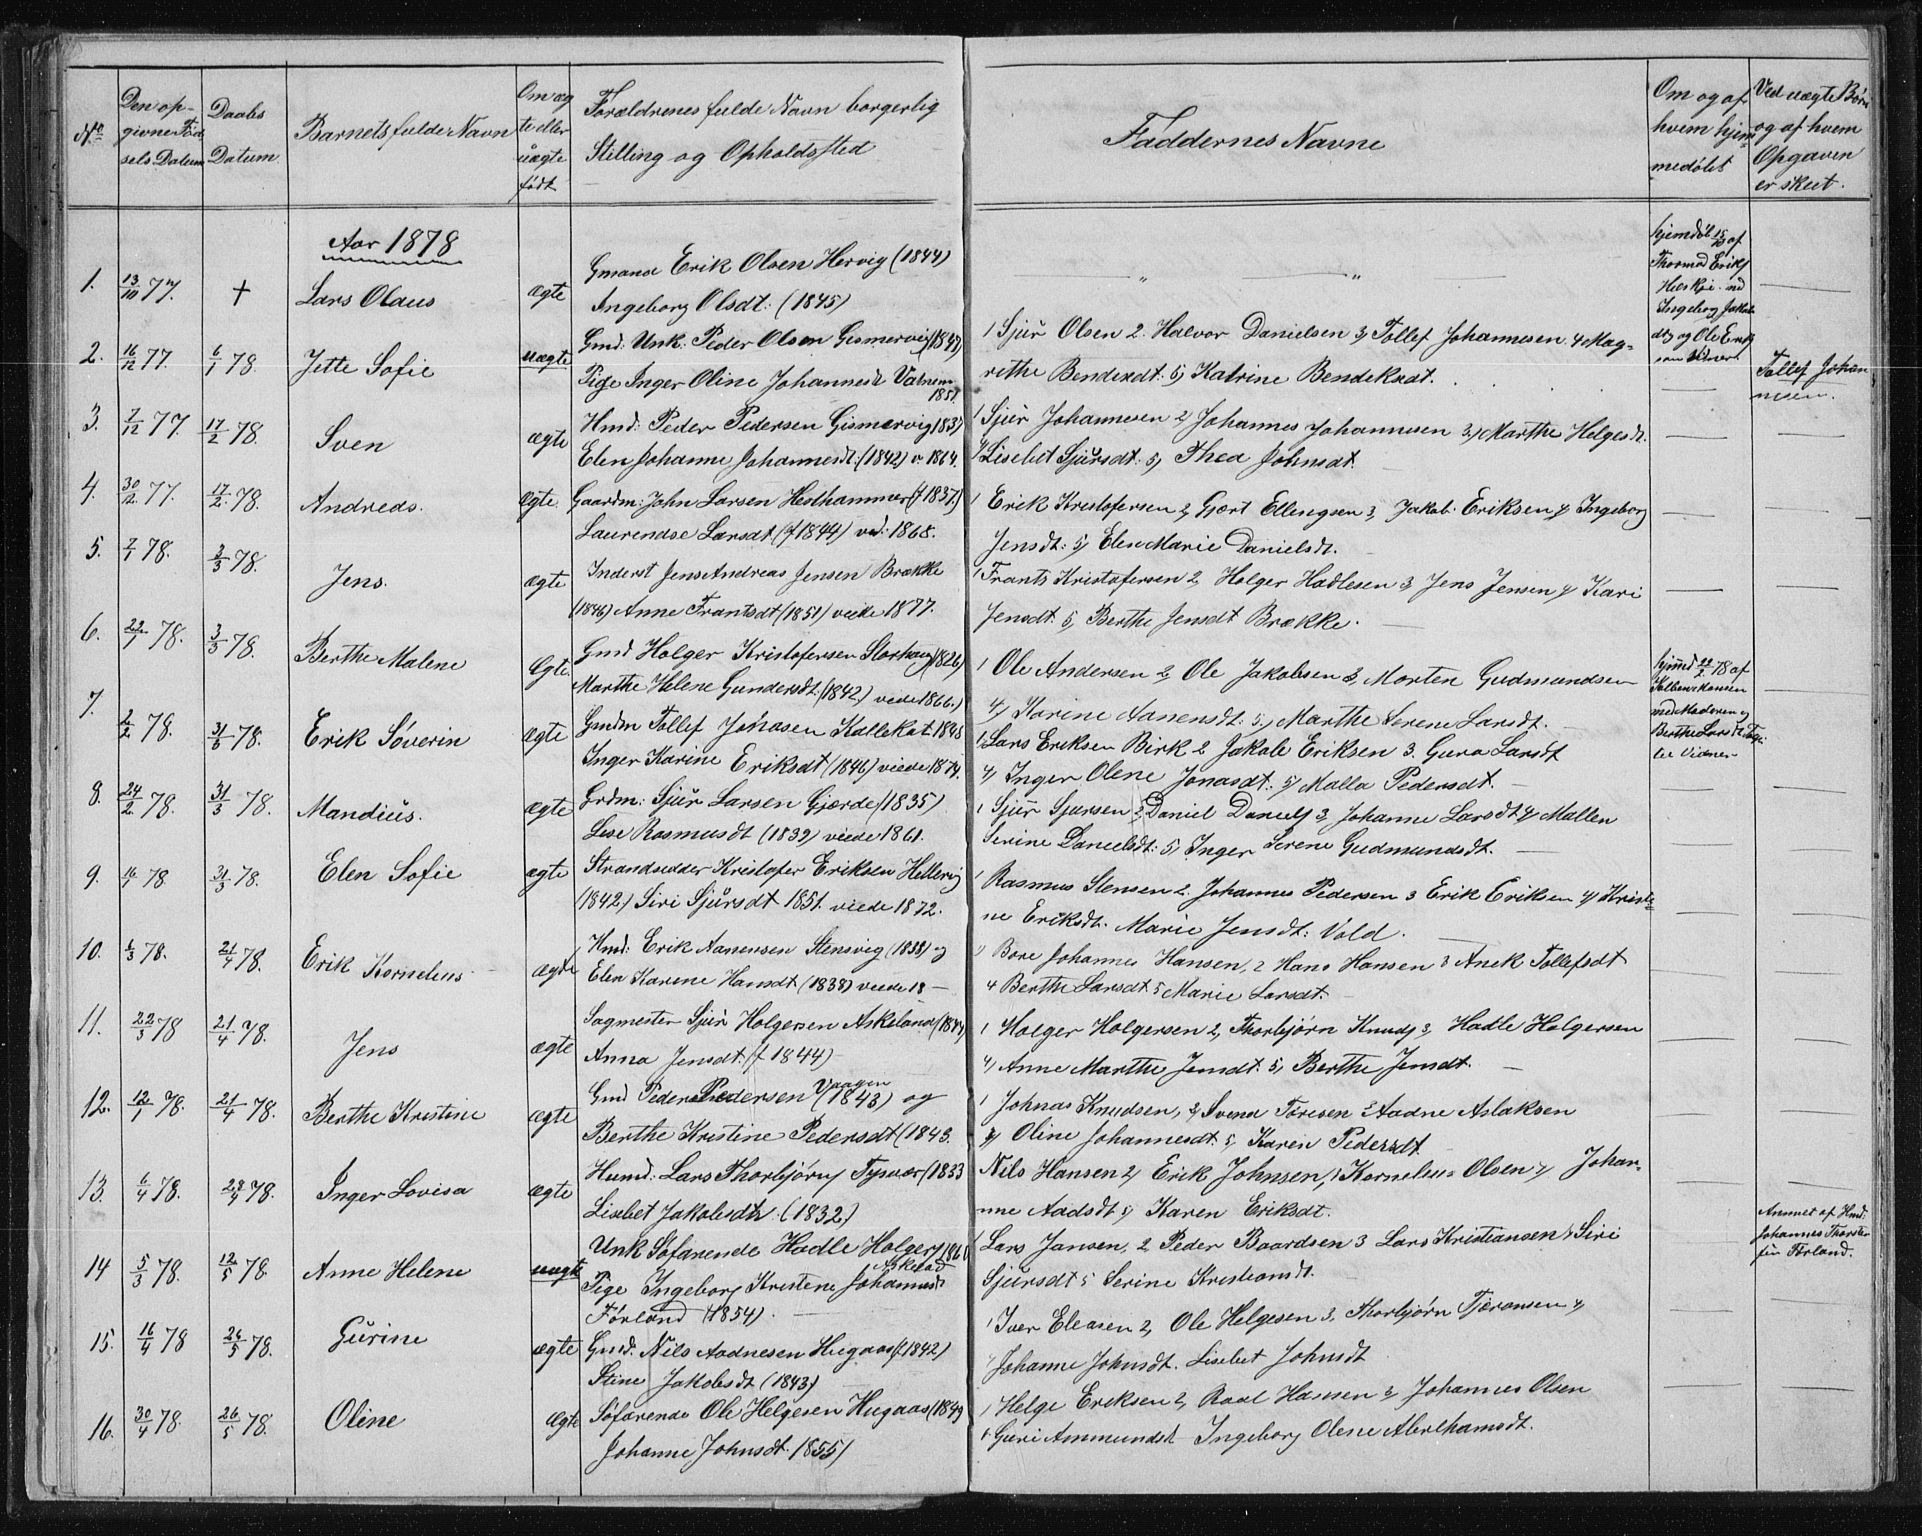 No.
Den op-
givne Fød
sels Datum
Daabs
Datum
Barnets fulde Navn
Om æg
te eller
uægte
født
Forældrenes fulde Navn borgerlig
Stilling og Opholdssted
Faddernes Navne
Om og af
hvem hjem
medøbt
Ved uægte Børn
og af hvem
Opgaven
er skeet.
Aar 1878
1. 13/10 77. † Lars Olaus ægte
Gmand Erik Olsen Hervig (1844)
Ingeborg Olsdt: (1845)
" "
hjemdøbt 15/10 af
Thormod Eriks
Ingeborg Jakobs
dtr og Ole Erik
2. 16/12 77. 6/1 78. Jette Sofie uægte
Gmd: Unk: Peder Olsen Gismervig (1847)
Pige Inger Oline Johannesdt Vatnem
1851.
1 Sjur Olsen 2. Halvor Danielsen 3) Tollef Johannesen 4 Mag-
rethe Bendexdt: 5) Katrine Bendeksdt.
Tollef Johan
nesen.
3. 7/12 77. 17/2 78. Sven ægte
Hmd: Peder Pedersen Gismervig 1837
Elen Johanne Johannesdt: (1842) v: 1864.
1 Sjur Johannesen 2) Johannes Johannesen 3) Marthe Helgesdt.
4) Lisebet Sjursdt: 5) Thea Johnsdt.
4. 30/12 77. 17/2 78. Andreas. ægte.
Gaardm: John Larsen Hesthammer (f 1837.)
Laurendse Larsdt (f 1844) vied: 1868.
1 Erik Kristofersen 2) Gjert Ellingsen 3) Jakob Eriksen 4) Ingeborg
Jensdt: 5) Elen Marie Danielsdt.
5. 7/1 78. 3/3 78. Jens. ægte
Inderst Jens Andreas Jensen Brække
(1846) Anne Frantsdt (1851) viede 1877.
1 Frants Kristofersen 2) Holger Hadlesen 3) Jens Jensen 4) Kari
Jensdt: 5) Berthe Jensdt Brække.
6. 22/1 78. 3/3 78. Berthe Malene Ægte.
Gmd Holger Kristofersen Storhaug (1826)
Marthe Helene Gundersdt: (1842) viede 1866.)
1 Ole Andersen 2) Ole Jakobsen 3) Morten Gudmundsen
4) Karine Aanensdt: 5) Marthe Serene Larsdt.
hjemd 22/2 78 af
med Moderen og
Berthe Larsdt
7. 2/2 78. 31/3 78. Erik Søverin ægte
Gmdm Tollef Johnsen Kallekot 1848
Inger Karine Eriksdt (1846) viede 1874.
1 Lars Eriksen Birk 2 Jakob Eriksen 3. Guro Larsdt
4) Inger Olene Jonasdt: 5) Malla Pedersdt.
8. 24/2 78. 31/3 78. Mandius. ægte
Grdm: Sjur Larsen Gjerde (1835)
Lise Rasmusdt (1839) viede 1861.
1 Sjur Sjursen 2) Daniel Daniels 3) Johanne Larsdt 4) Mallen
Serine Danielsdt: 5) Inger Serene Gudmundsdt.
9. 16/1 78 31/3 78. Elen Sofie ægte
Strandsidder Kristofer Eriksen Hellevig
(1842) Siri Sjursdt 1851. viede 1872.
1 Rasmus Stensen 2. Johannes Pedersen 3 Erik Eriksen 4) Kristi-
ne Eriksdt: Marie Jensdt: Vold.
10. 6/3 78. 21/4 78. Erik Kornelius ægte
Hmd: Erik Aanensen Stensvig (1838) og
Elen Karene Hansdt (1838) viede 18 —
1) Bore Johannes Hansen, 2 Hans Hansen 3 Anek Tollefsdt
4 Berthe Larsdt 5 Marie Larsdt.
11. 22/3 78 21/4 78. Jens ægte
Sagmester Sjur Holgersen Askeland (1844)
Anna Jensdt. (f 1844)
1 Holger Holgersen 2, Thorbjørn Knuds 3, Hadle Holgersen
4) Anne Marthe Jensdt: 5) Berthe Jensdt.
12. 12/1 78. 21/4 78. Berthe Kristine ægte
Gmd Peder Pedersen Vaagen (1843) og
Berthe Kristine Pedersdt (1843.
1 Johnas Knudsen, 2) Svend Toresen 3 Aadne Aslaksen
4) Oline Johannesdt: 5, Karen Pedersdt
13. 6/4 78. 28/4 78. Inger Lovisa ægte
Husmd: Lars Thorbjørns Tysvær (1833
Lisebet Jakobsdtr. (1832)
Nils Hansen 2) Erik Johnsen, 3 Kornelius Olsen 4) Johan-
nne Aadsdt 5) Karen Eriksdt.
14 5/3 78. 12/5 78. Anne Helene uægte
Unk Søfarende Hadle Holgers 1860
Askelad
Pige Ingeborg Kristene Johannesdt
Førland (1854).
1 Lars Jansen, 2 Peder Baardsen 3 Lars Kristiansen 4 Siri
Sjursdt 5 Serine Kristiansdt.
Anmet af Hmd:
Johannes Thorste
Førland.
15. 16/4 78 26/5 78. Gurine ægte
Gmd. Nils Aadnesen Hugaas (f. 1842)
Stine Jakobsdt (1843)
1 Iver Eleasen 2, Ole Helgesen 3, Thorbjørn Tjøransen 4)
Johanne Johnsdt. Lisebet Johnsdt
16. 30/4 78. 26/5 78. Oline Ægte
Søfarende Ole Helgesen Hugaas (1849
Johanne Johnsdt. 1855)
1 Helge Eriksen 2, Roal Hansen 3, Johannes Olsen
4 Guri Ammundsdt Ingeborg Olene Abelhamsdt.